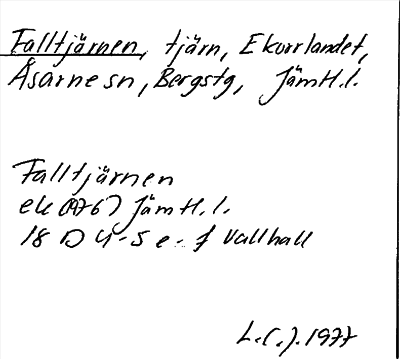 Falltjärnen, tjärn, Ekorrlandet,
Åsarne sn, Bergstg, Jämtl.l.
Falltjärnen
ek (1976) Jämtl.l.
18 D 4-5 e-f Vallhall
L.C.J. 1977